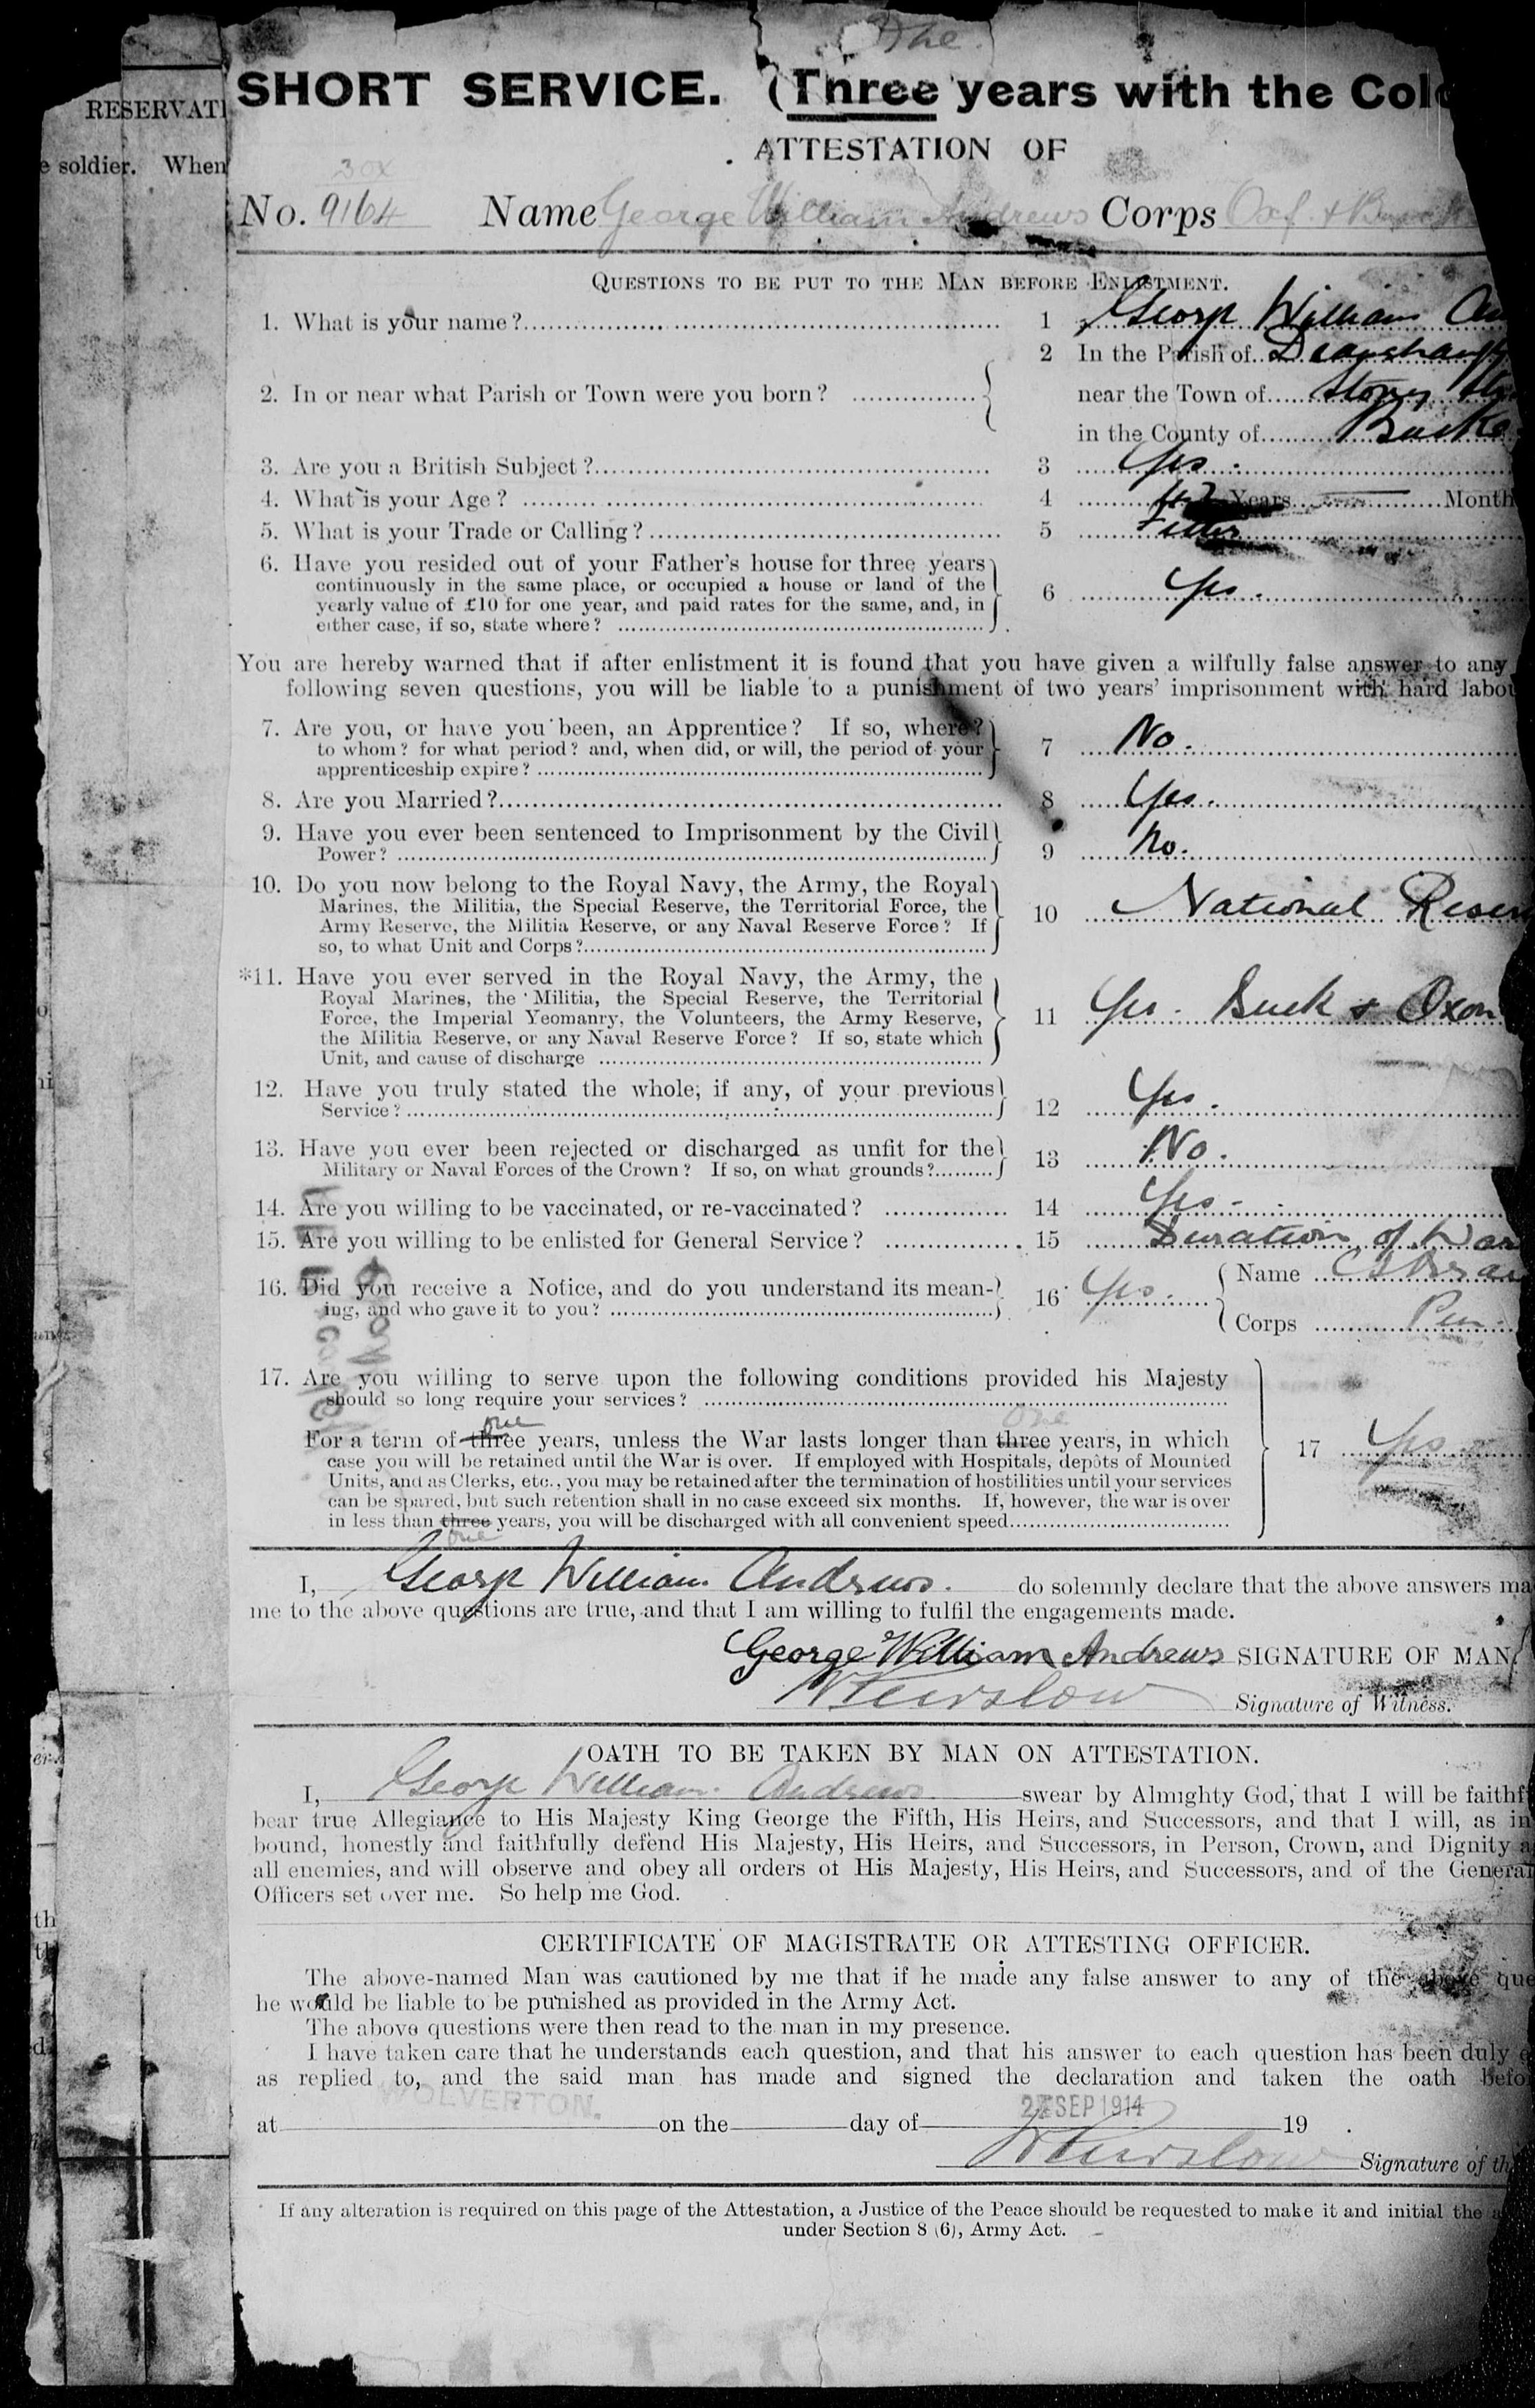 RESERVATI
e soldier. When
One
SHORT SERVICE. (Three years with the Colo
ATTESTATION OF
No. 9164 Name George William Andrews Corps Oxf. & Bucks
QUESTIONS TO BE PUT TO THE MAN BEFORE ENLISTMENT.
1. What is your name? 1 George William An
2 In the Parish of
2. In or near what Parish or Town were you born? near the Town of Stony
in the County of Bucks
3. Are you a British Subject? 3 Yes.
4. What is your Age? 4 42 Years Month
5. What is your Trade or Calling? 5 Fitter
6. Have you resided out of your Father's house for three years
continuously in the same place, or occupied a house or land of the
yearly value of £10 for one year, and paid rates for the same, and, in
either case, if so, state where? 6 Yes.
You are hereby warned that if after enlistment it is found that you have given a wilfully false answer to any
following seven questions, you will be liable to a punishment of two years' imprisonment with hard labou
7. Are you, or have you been, an Apprentice? If so, where?
to whom? for what period? and, when did, or will, the period of your
apprenticeship expire? 7 No.
8. Are you Married? 8 Yes.
9. Have you ever been sentenced to Imprisonment by the Civil
Power? 9 No.
10. Do you now belong to the Royal Navy, the Army, the Royal
Marines, the Militia, the Special Reserve, the Territorial Force, the
Army Reserve, the Militia Reserve, or any Naval Reserve Force? If
so, to what Unit and Corps? 10 National Reser
*11. Have you ever served in the Royal Navy, the Army, the
Royal Marines, the Militia, the Special Reserve, the Territorial
Force, the Imperial Yeomanry, the Volunteers, the Army Reserve,
the Militia Reserve, or any Naval Reserve Force? If so, state which
Unit, and cause of discharge 11 Yes. Buck & Oxon
12. Have you truly stated the whole, if any, of your previous
Service? 12 Yes.
13. Have you ever been rejected or discharged as unfit for the
Military or Naval Forces of the Crown? If so, on what grounds? 13 No.
14. Are you willing to be vaccinated, or re-vaccinated? 14 Yes.
15. Are you willing to be enlisted for General Service? 15 Duration of War
16. Did you receive a Notice, and do you understand its mean-
ing, and who gave it to you? 16 Yes. Name
Corps
17. Are you willing to serve upon the following conditions provided his Majesty
should so long require your services?
one one
For a term of three years, unless the War lasts longer than three years, in which
case you will be retained until the War is over. If employed with Hospitals, depôts of Mounted
Units, and as Clerks, etc., you may be retained after the termination of hostilities until your services
can be spared, but such retention shall in no case exceed six months. If, however, the war is over
in less than three years, you will be discharged with all convenient speed 17 Yes
one
I, George William Andrews. do solemnly declare that the above answers ma
me to the above questions are true, and that I am willing to fulfil the engagements made.
George William Andrews SIGNATURE OF MAN.
Signature of Witness.
OATH TO BE TAKEN BY MAN ON ATTESTATION.
I, George William Andrews swear by Almighty God, that I will be faithf
bear true Allegiance to His Majesty King George the Fifth, His Heirs, and Successors, and that I will, as in
bound, honestly and faithfully defend His Majesty, His Heirs, and Successors, in Person, Crown, and Dignity a
all enemies, and will observe and obey all orders of His Majesty, His Heirs, and Successors, and of the General
Officers set over me. So help me God.
CERTIFICATE OF MAGISTRATE OR ATTESTING OFFICER.
The above-named Man was cautioned by me that if he made any false answer to any of the above que
he would be liable to be punished as provided in the Army Act.
The above questions were then read to the man in my presence.
I have taken care that he understands each question, and that his answer to each question has been duly e
as replied to, and the said man has made and signed the declaration and taken the oath befo
at WOLVERTON. on the day of SEP 1914 19 .
Signature of th
If any alteration is required on this page of the Attestation, a Justice of the Peace should be requested to make it and initial the a
under Section 8 (6), Army Act.